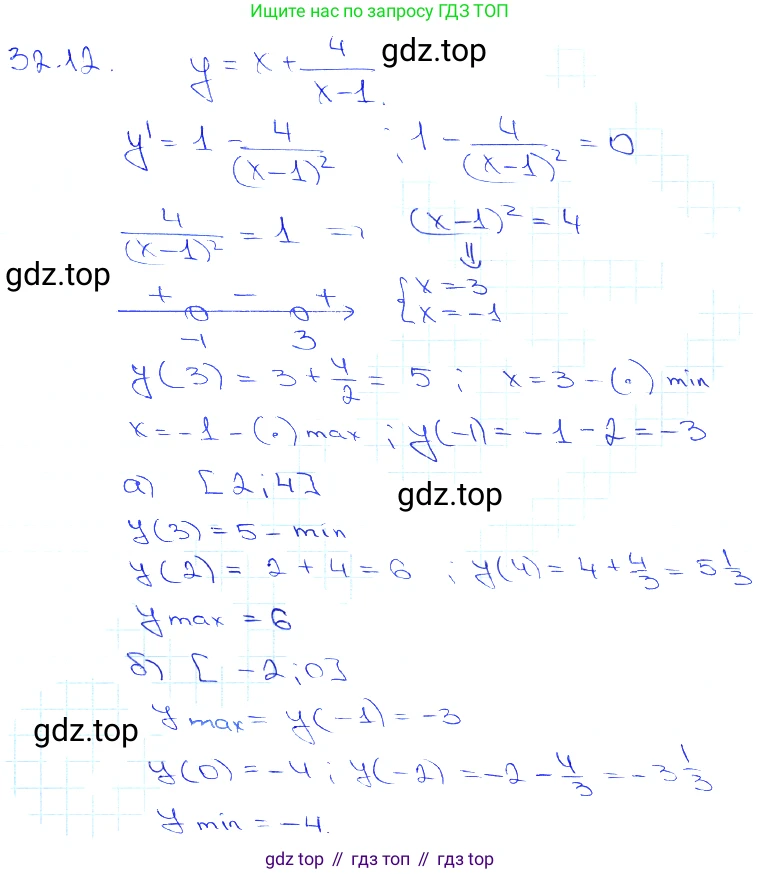 Ищите нас по запросу ГДЗ ТОП
32.12. y = x + 4/(x-1). gdz.top
y' = 1 - 4/(x-1)² ; 1 - 4/(x-1)² = 0
4/(x-1)² = 1 => (x-1)² = 4
⇓
gdz.top
+ - + { x = 3
-1 3 x = -1
y(3) = 3 + 4/2 = 5 ; x = 3 - (·) min
x = -1 - (·) max ; y(-1) = -1 - 2 = -3
а) [2;4] gdz.top
y(3) = 5 - min
y(2) = 2 + 4 = 6 ; y(4) = 4 + 4/3 = 5 1/3
y max = 6
б) [-2;0]
y max = y(-1) = -3
gdz.top
y(0) = -4 ; y(-2) = -2 - 4/3 = -3 1/3
y min = -4.
gdz top // гдз топ // gdz top